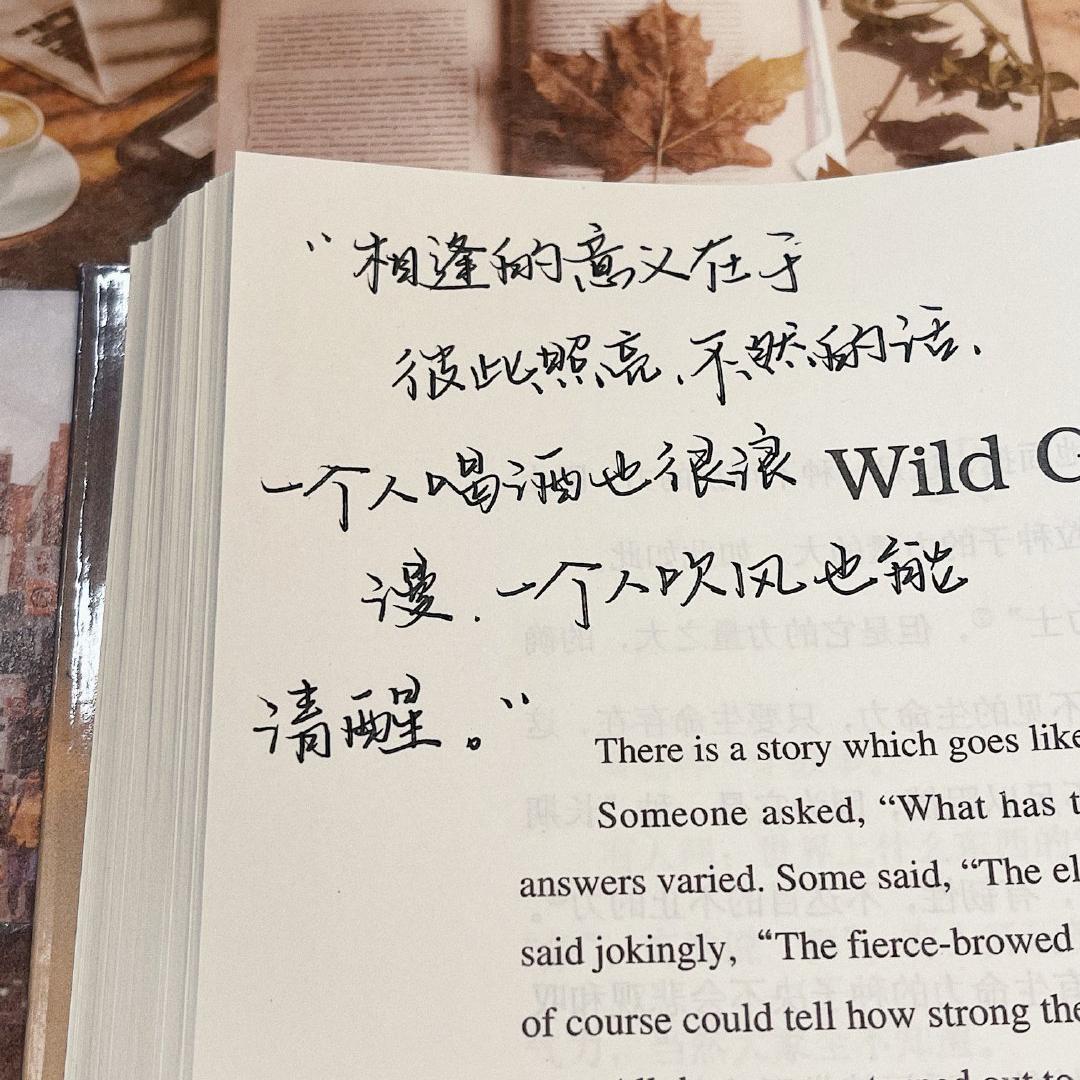 “相逢的意义在于
彼此照亮,不然的话,
一个人喝酒也很浪
漫,一个人吹风也能
清醒。”
Wild
There is a story which goes like
Someone asked, “What has
answers varied. Some said, “The
said jokingly, “The fierce-browed
of course could tell how strong the